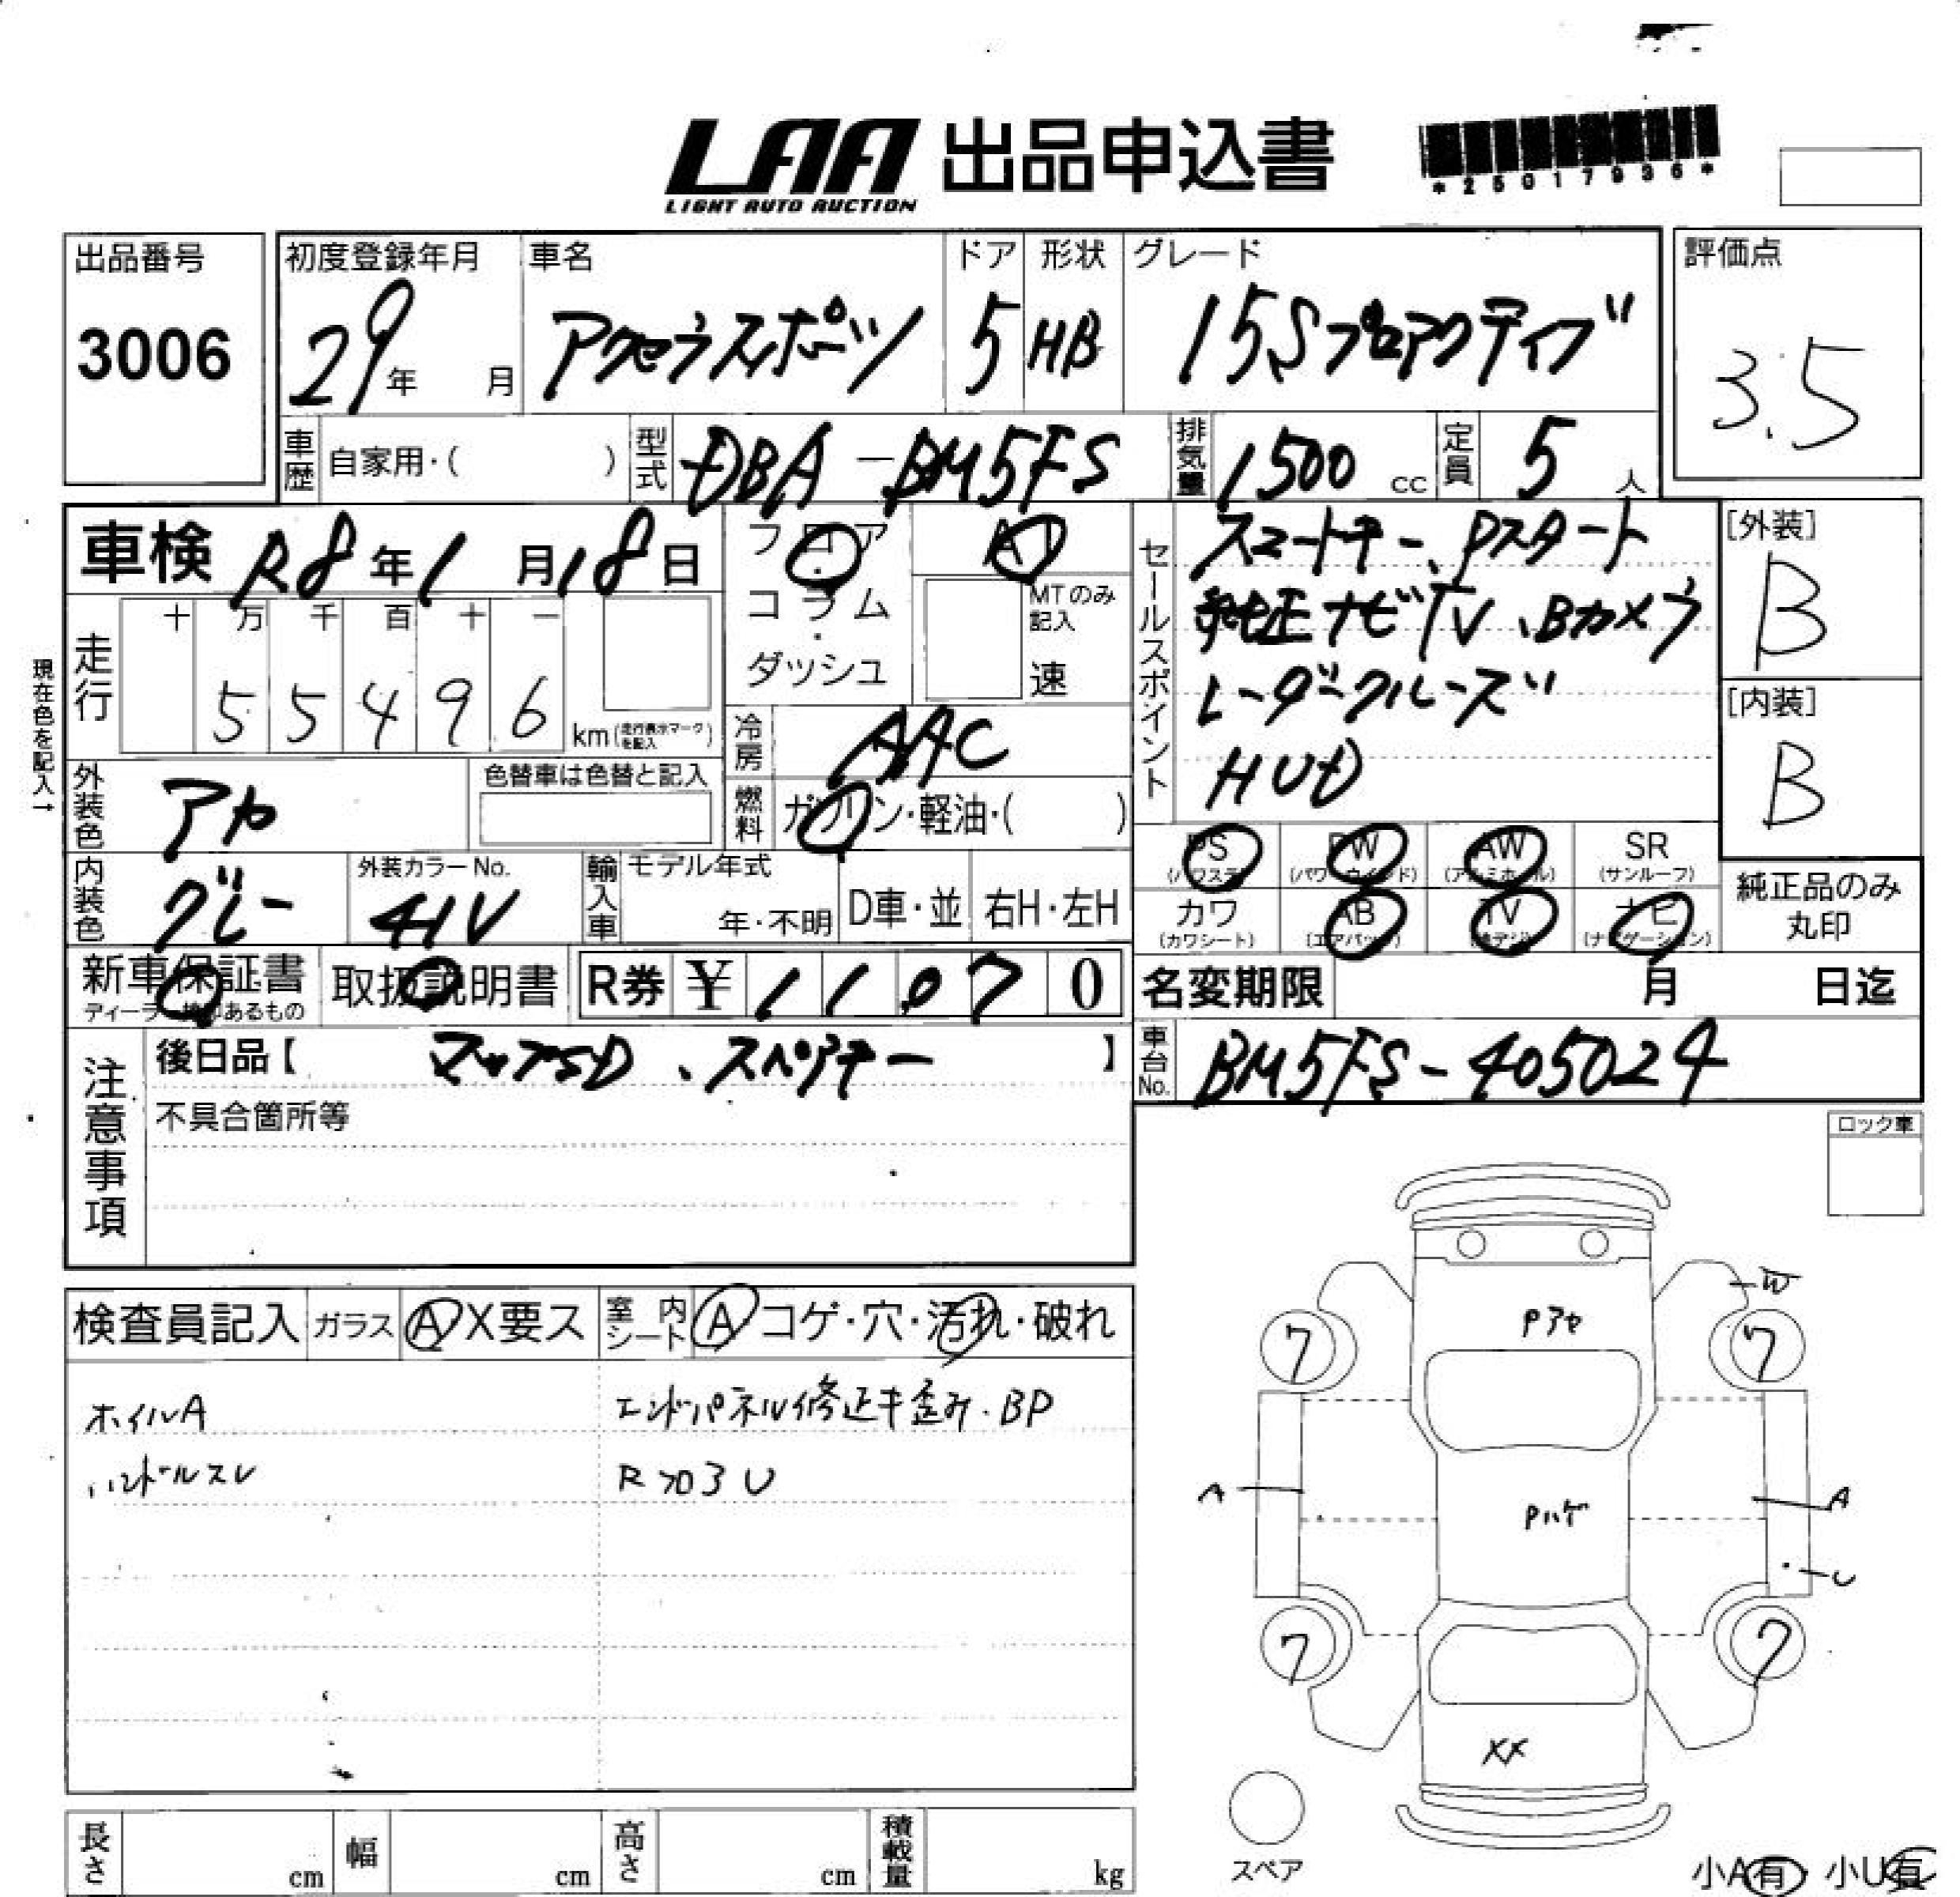 LAA 出品申込書
LIGHT AUTO AUCTION
*25017936*
出品番号
3006
初度登録年月
29年 月
車名
アクセラスポーツ
ドア
5
形状
HB
グレード
15Sプロアクティブ
評価点
3.5
車歴 自家用・( )
型式 DBA-BM5FS
排気量 1500 cc
定員 5 人
車検 R8年1月18日
フロア・コラム・ダッシュ
MTのみ記入
速
セールスポイント
スマートキー、Pスタート
純正ナビTV、Bカメラ
レーダークルーズ
HUD
[外装]
B
[内装]
B
現在色を記入→
走行
十 万 千 百 十 一
5 5 4 9 6 km(走行表示マークを記入)
冷房 AAC
燃料 ガソリン・軽油・( )
外装色 アカ
色替車は色替と記入
内装色 グレー
外装カラーNo.
41V
輸入車
モデル年式
年・不明
D車・並
右H・左H
PS
(パワステ)
PW
(パワーウインド)
AW
(アルミホイール)
SR
(サンルーフ)
カワ
(カワシート)
AB
(エアバック)
TV
ナビ
(ナビゲーション)
純正品のみ
丸印
新車保証書
取扱説明書
R券 ¥ 1 1 0 7 0
名変期限 月 日迄
車台No. BM5FS-405024
注意事項
後日品【 マップSD、スペアキー 】
不具合箇所等
ロック車
検査員記入
ガラス A X要ス
室内シート A コゲ・穴・汚れ・破れ
ホイルA
ハンドルスレ
エンドパネル修正キ歪み・BP
Rフロ3 U
W
Pアセ
7
7
A
Pハゲ
A
U
7
7
XX
スペア
長さ cm
幅 cm
高さ cm
積載量 kg
小A有 小U有